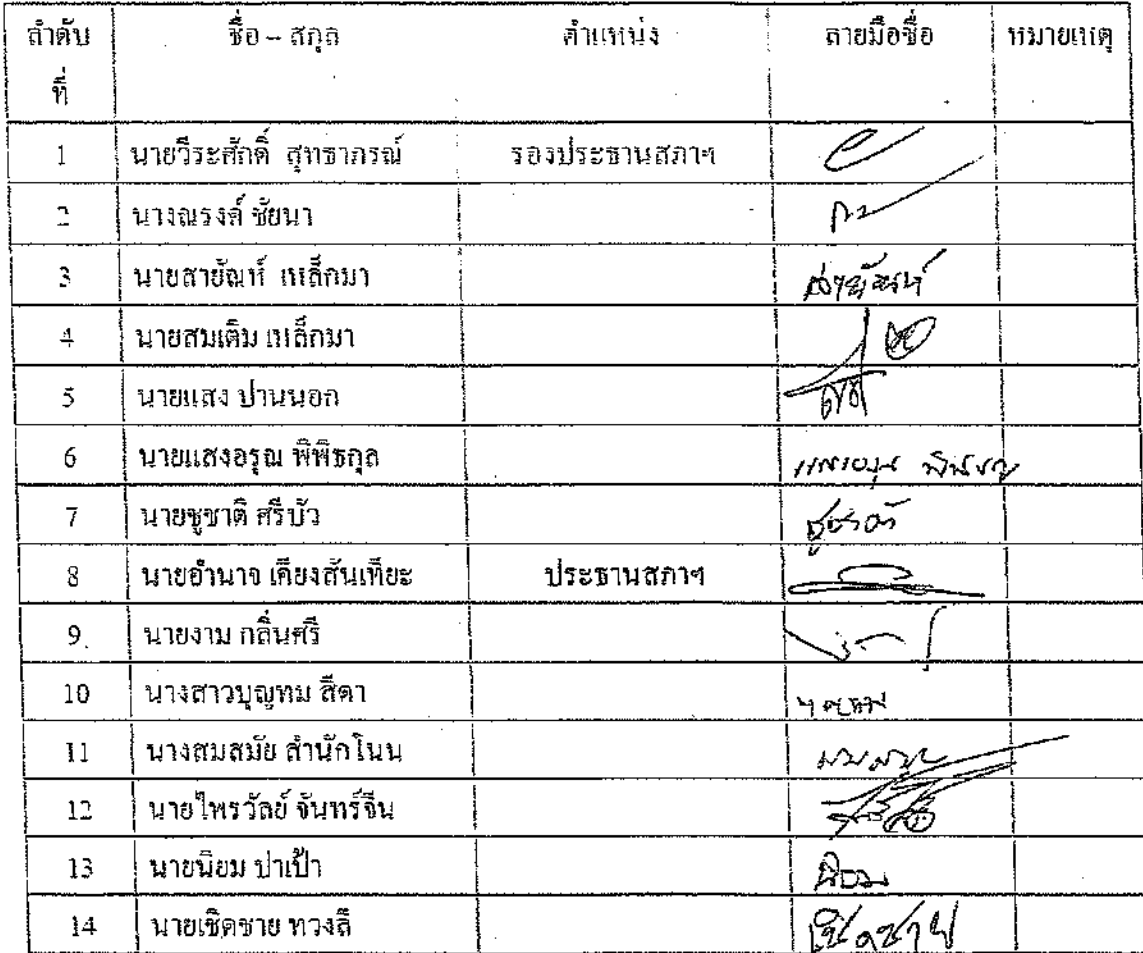 ลำดับ ชื่อ – สกุล ตำแหน่ง ลายมือชื่อ หมายเหตุ
ที่
1 นายวีระศักดิ์ สุทธาภรณ์ รองประธานสภาฯ
2 นางณรงค์ ชัยนา
3 นายสายัณห์ เหล็กมา สายัณห์
4 นายสมเติม เหล็กมา
5 นายแสง ปานนอก
6 นายแสงอรุณ พิพิธกุล
7 นายชูชาติ ศรีบัว ชูชาติ
8 นายอำนาจ เคียงสันเทียะ ประธานสภาฯ
9. นายงาม กลิ่นศรี
10 นางสาวบุญทม สีดา
11 นางสมสมัย สำนักโนน
12 นายไพรวัลย์ จันทร์จีน
13 นายนิยม ปาเป้า นิยม
14 นายเชิดชาย ทวงลี เชิดชาย